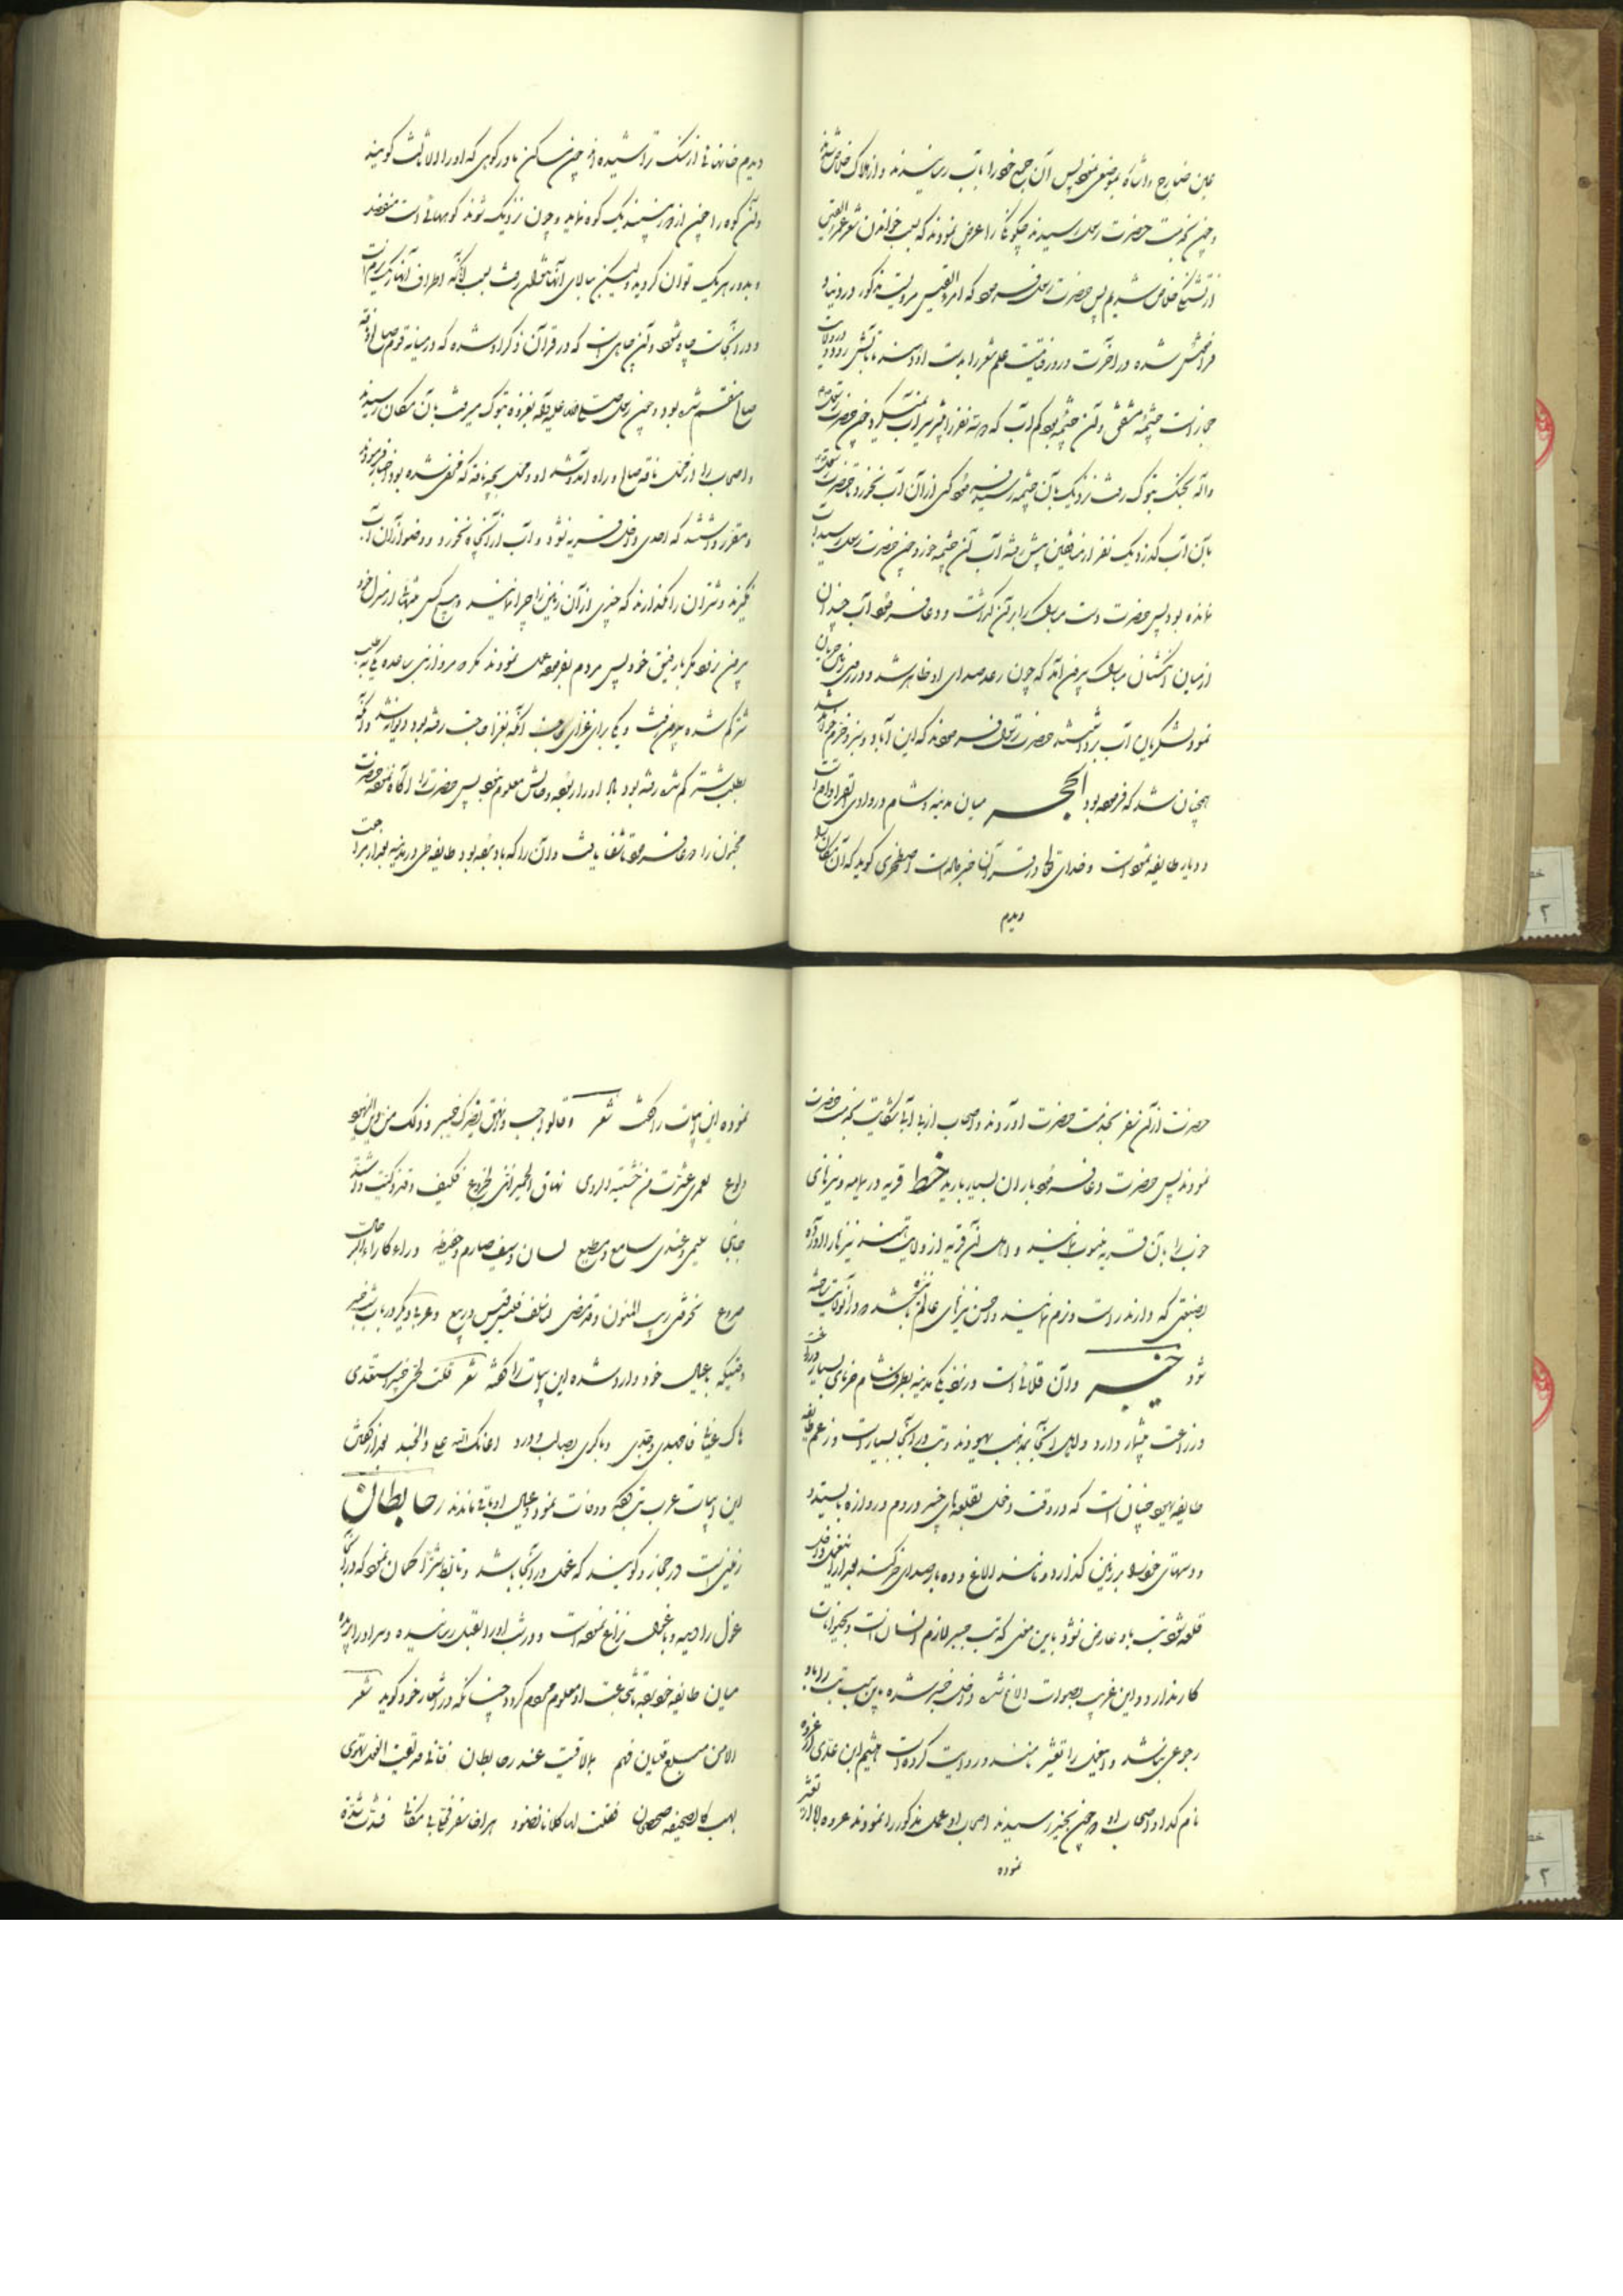 عین ضارج و اشاره بموضعی نمود پس آن جمع خود را بآب رسانیدند و از هلاک خلاص شدند
و چون بخدمت حضرت رسول رسیدند چگونگی را عرض نمودند که بسبب خواندن شعر امرء القیس
از تشنگی خلاص شدیم پس حضرت رسول فرمود که امرء القیس مردیست مذکور در دنیا و
فراموش شده در آخرت و روز قیامت علم شعرا بدست اوست تا بآتش رود
حجاز است چشمهٔ مشقق و آن چشمه بود کم آب که دو سه نفر را بیشتر سیراب نمیکرد و چون حضرت رسول
وآله بجنگ تبوک رفت نزدیک بآن چشمه رسید فرمود کسی از آن آب نخورد تا حضرت رسول
بآن آب گذرد یک نفر از منافقین پیش رفته آب آن چشمه خورد چون حضرت رسول رسید آب
نمانده بود پس حضرت دست مبارک را بر آن گذاشت و دعا فرمود آب چندان
از میان انگشتان مبارک بیرون آمد که چون رعد صدای او ظاهر شد و در زمین جریان
نمود لشکریان آب برداشتند حضرت رسول فرمودند که این آباد و سبز و خرم خواهد شد
همچنان شد که فرموده بود الحجر میان مدینه و شام در وادی القری واقع است
و دیار طایفه ثمود است و خدای تعالی در قرآن خبر داده است اصطخری گوید که آن مکان را
دیدم
دیدم خانها از سنگ تراشیده اند چون مساکن ما در کوهی که او را اثالث گویند
و آن کوه را چون از دور بینند یک کوه نماید و چون نزدیک شوند کوههائی است منفصل
و بدور هر یک توان گردید ولیکن ببالای آنها نتوان رفت بسبب آنکه اطراف آنها ریگ نرم است
و در آنجاست چاه ثمود و آن چاهی است که در قرآن ذکر او شده که در میانه قوم صالح و ناقه
صالح منقسم شده بود و چون رسول صلی الله علیه وآله بغزوه تبوک میرفت بآن مکان رسیدند
و اصحاب را از محل ناقه صالح و راه آمد و شد او و محل بچه ناقه که مخفی شده بود اخبار فرمودند
و مقرر داشتند که احدی داخل قریه نشود و آب از آن چاه نخورد و وضو از آن آب
نگیرند و شتران را نگذارند که چیزی از آن زمین را چرا نمایند و هیچ کس تنها از منزل خود
بیرون نرود مگر با رفیق خود پس مردم بفرموده عمل نمودند مگر دو مرد از بنی ساعده یکی بطلب
شتر گم شده بیرون رفت و یکی برای قضای حاجت آنکه بقضای حاجت رفته بود دیوانه شد و آنکه
بطلب شتر گم شده رفته بود باد او را ربود و حالش معلوم نبود پس حضرت را آگاه نمودند حضرت
مجنون را دعا فرمود تا شفا یافت و آن را که باد برده بود طایفه طی در مدینه بعد از مراجعت
حضرت از آن سفر بخدمت حضرت آوردند و اصحاب از بی آبی شکایت بخدمت حضرت
نمودند پس حضرت دعا فرمود باران بسیار بارید خط قریه در یمامه و نیزهای
خوب را بآن قریه منسوب نمایند و اهل آن قریه از ولایت هند نیزها را آورده
بصنعتی که دارند راست و نرم نمایند و احسن نیزهای عالم باشد و در آن ولایت ساخته
شود خیبر و آن قلاعی است در نزدیکی مدینه بطرف شام خرمای بسیار دارد
و زراعت بیشمار دارد و اهل آنجا بمذهب یهودند و تب در آنجا بسیار است و زعم طایفه
طایفه یهود چنان است که در وقت دخول بقلعهای خیبر مردم در دروازه بایستند
و دستهای خود را بر زمین گذارد و مانند الاغ و ده بار صدای خر کند بعد از آن داخل
قلعه شود تب باو عارض نشود باین معنی که تب خیبر لازم انسان است و بحیوانات
کار ندارد و این غریب بصورت الاغ شده و داخل خیبر شده باین سبب تب را باو
رجوعی نباشد و این عمل را تعشیر نامند و روایت کرده است هیثم ابن عدی که عروه
نام کدا و اصحاب او چون بخیبر رسیدند اصحاب او عمل مذکور را نمودند عروه ابا از تعشیر
نموده
نموده این ابیات را گفت شعر وقالوا احب وانهق لا تضرک خیبر وذلک من دین الیهود
ولوع لعمری لئن عشرت من خشیة الردی نهاق الحمیر اننی لجزوع فکیف وقد ذکیت واشتد
جانبی سلیمی وعندی سامع ومطیع لسان وسیف صارم وحفیظة وراء لآراء الرجال
صروع تخوفنی ریب المنون وقد مضی لنا سلف قیس وربیع و عرب دیگر در باب تب خیبر
وقتیکه بعیال خود وارد شده این ابیات را گفته شعر قلت لحمی خیبر استعدی
هاک عیالی فاجهدی وجدی وباکری بصالب وورد اعانک الله علی ذا الجند بعد از گفتن
این ابیات عرب تب کرد و وفات نمود و عیال او باقی ماندند رحا بطان
زمینی است در حجاز و گویند که غول در آنجا باشد و تأبط شرا گمان نمود که در آنجا
غول را دیده و با غول نزاع نموده است و در شب او را بقتل رسانیده و سر او را بریده
میان طایفه خود برد تا شجاعت او معلوم مردم گردد چنانکه در اشعار خود گوید شعر
الا من مبلغ فتیان فهم بما لاقیت عند رحا بطان فانی قد لقیت الغول تهوی
بسهب کالصحیفه صحصحان فقلت لها کلانا نضو اخو سفر فخلی لی مکانی فشدت شدة